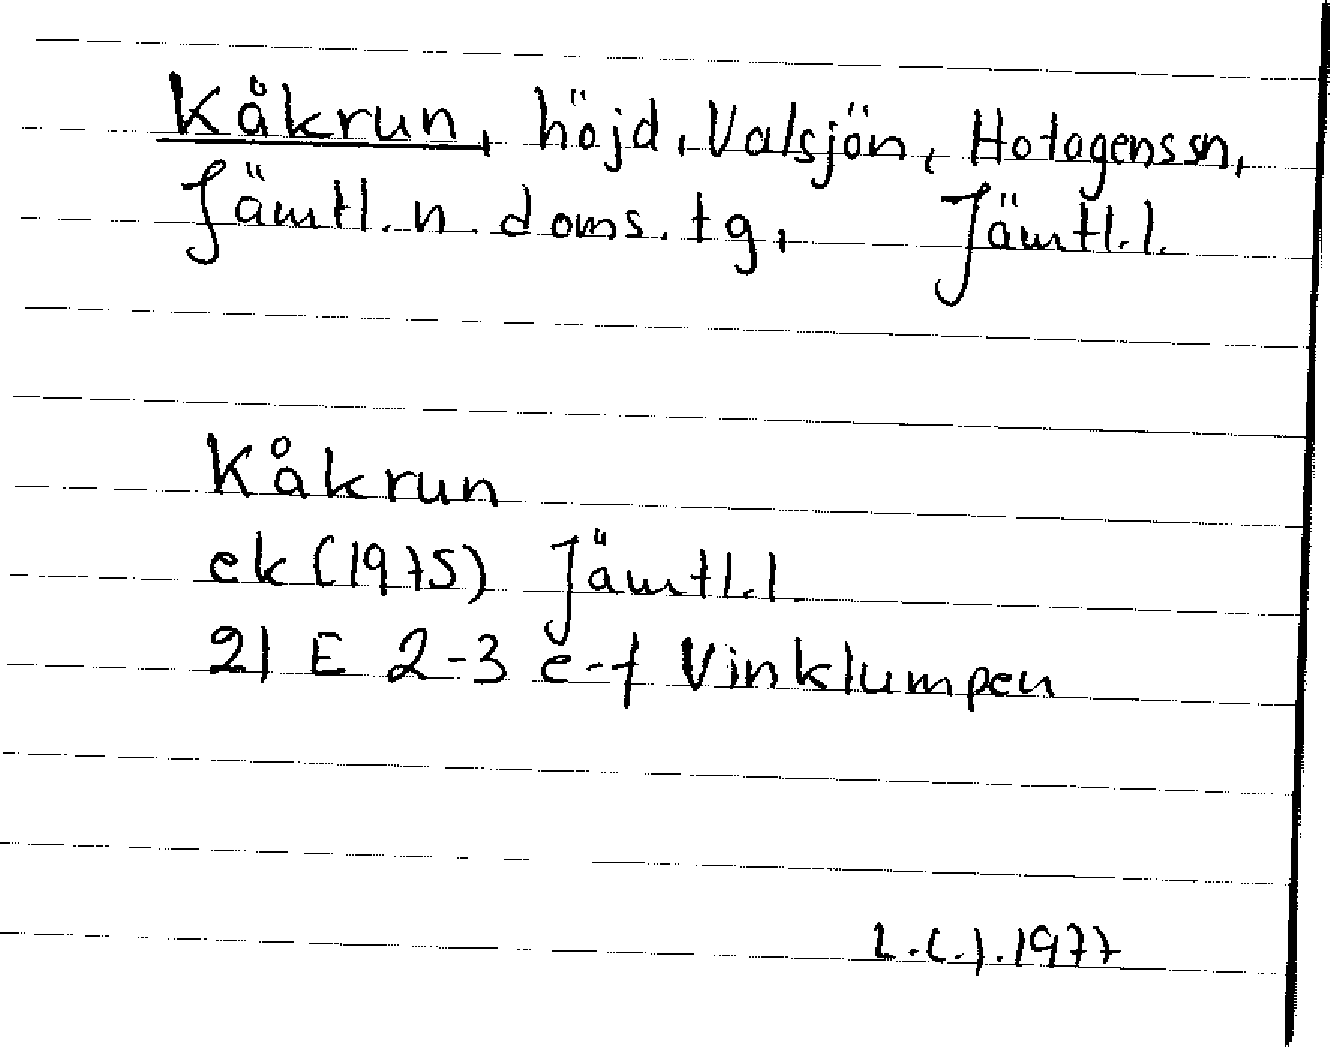 Kåkrun, höjd, Valsjön, Hotagens sn,
Jämtl. n. doms. tg, Jämtl. l.
Kåkrun
ek (1975) Jämtl. l.
21 E 2-3 e-f Vinklumpen
L.C.J. 1977